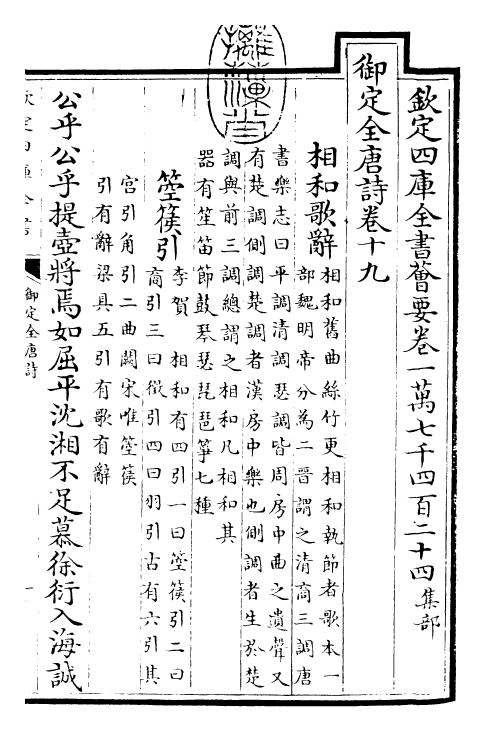 欽定四庫全書薈要卷一萬七千四百二十四 集部
御定全唐詩卷十九
相和歌辭 相和舊曲絲竹更相和執節者歌本一
部魏明帝分為二晉謂之清商三調唐
書樂志曰平調清調瑟調皆周房中曲之遺聲又
有楚調側調楚調者漢房中樂也側調者生於楚
調與前三調總謂之相和凡相和其
器有笙笛節鼓琴瑟琵琶箏七種
箜篌引 李賀 相和有四引一曰箜篌引二曰
商引三曰徵引四曰羽引古有六引其
宮引角引二曲闕宋唯箜篌
引有辭梁具五引有歌有辭
公乎公乎提壺將焉如屈平沈湘不足慕徐衍入海誠
欽定四庫全書
御定全唐詩
一
摛藻堂